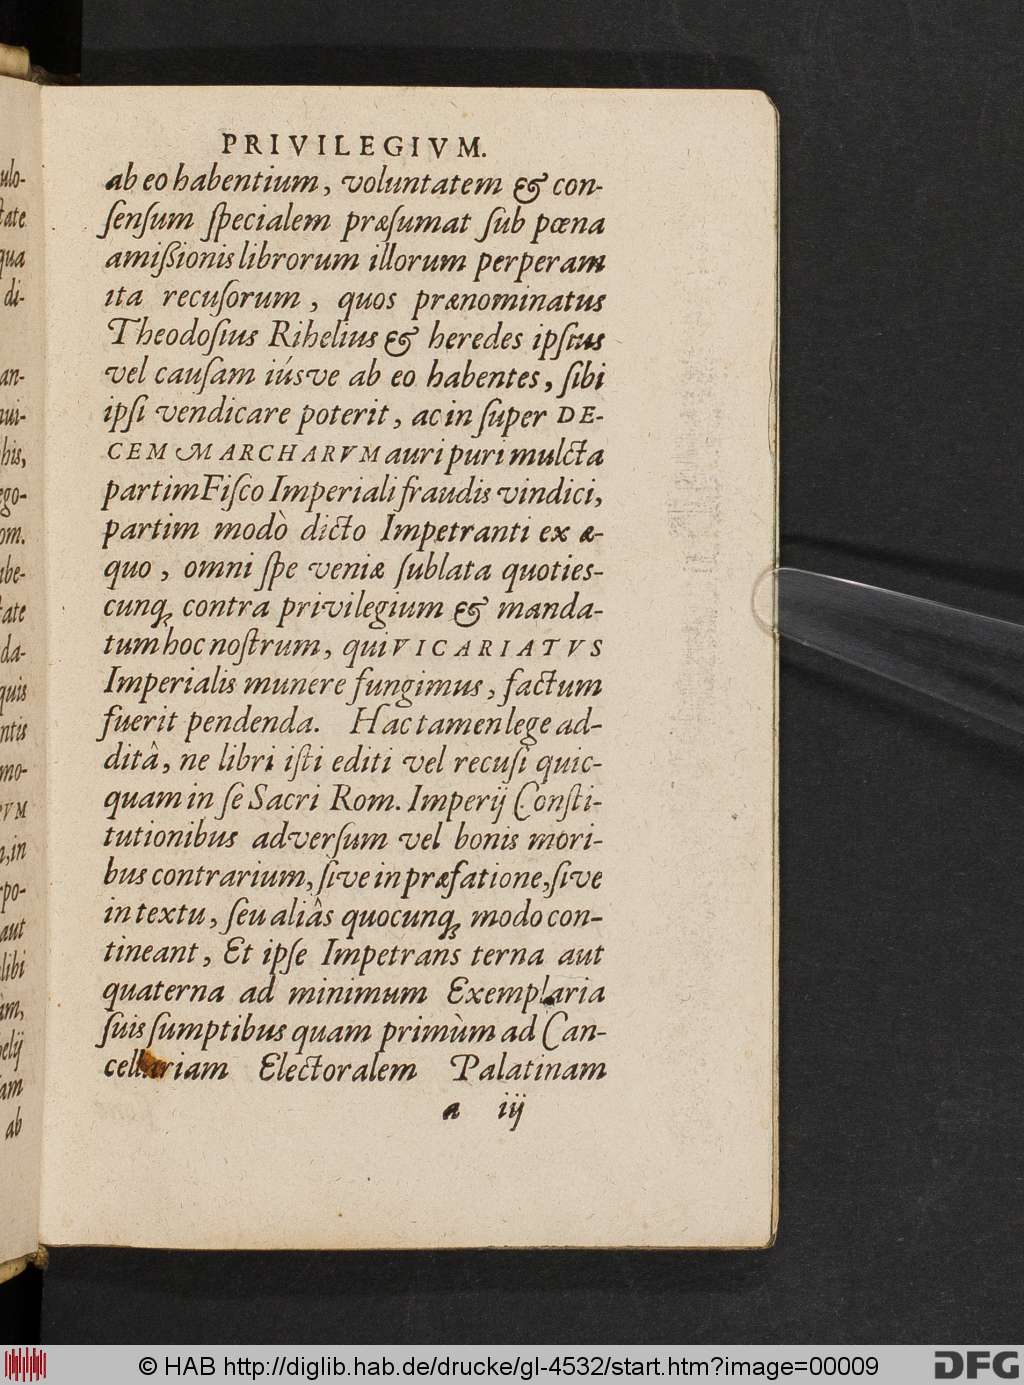 PRIVILEGIVM.
ab eo habentium, voluntatem & con-
ſenſum ſpecialem præſumat ſub pœna
amiſſionis librorum illorum perperam
ita recuſorum, quos prænominatus
Theodoſius Rihelius & heredes ipſius
vel cauſam iúsve ab eo habentes, ſibi
ipſi vendicare poterit, ac in ſuper DE-
CEM MARCHARVM auri puri mulcta
partim Fiſco Imperiali fraudis vindici,
partim modò dicto Impetranti ex æ-
quo, omni ſpe veniæ ſublata quoties-
cunq; contra privilegium & manda-
tum hoc noſtrum, qui VICARIATVS
Imperialis munere fungimus, factum
fuerit pendenda. Hac tamen lege ad-
ditâ, ne libri iſti editi vel recuſi quic-
quam in ſe Sacri Rom. Imperij Conſti-
tutionibus adverſum vel bonis mori-
bus contrarium, ſive in præfatione, ſive
in textu, ſeu aliâs quocunq; modo con-
tineant, Et ipſe Impetrans terna aut
quaterna ad minimum Exemplaria
ſuis ſumptibus quam primùm ad Can-
cellariam Electoralem Palatinam
a iij
ulo-
tate
qua
di-
an-
nui-
his,
ego-
om.
ibe-
tate
da-
quis
ntis
mo-
PVM
n, in
rpo-
aut
libi
àm,
elij
ſam
ab
© HAB http://diglib.hab.de/drucke/gl-4532/start.htm?image=00009
DFG